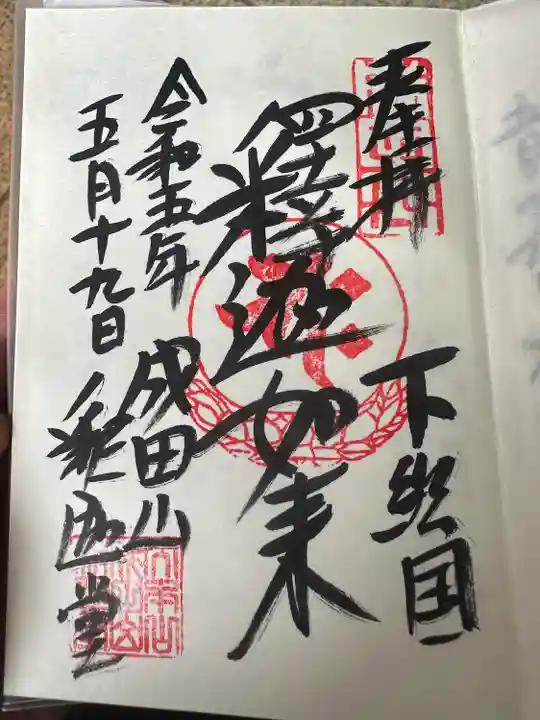 奉拝
下総国
釋迦如来
成田山
釈迦堂
令和五年
五月十九日